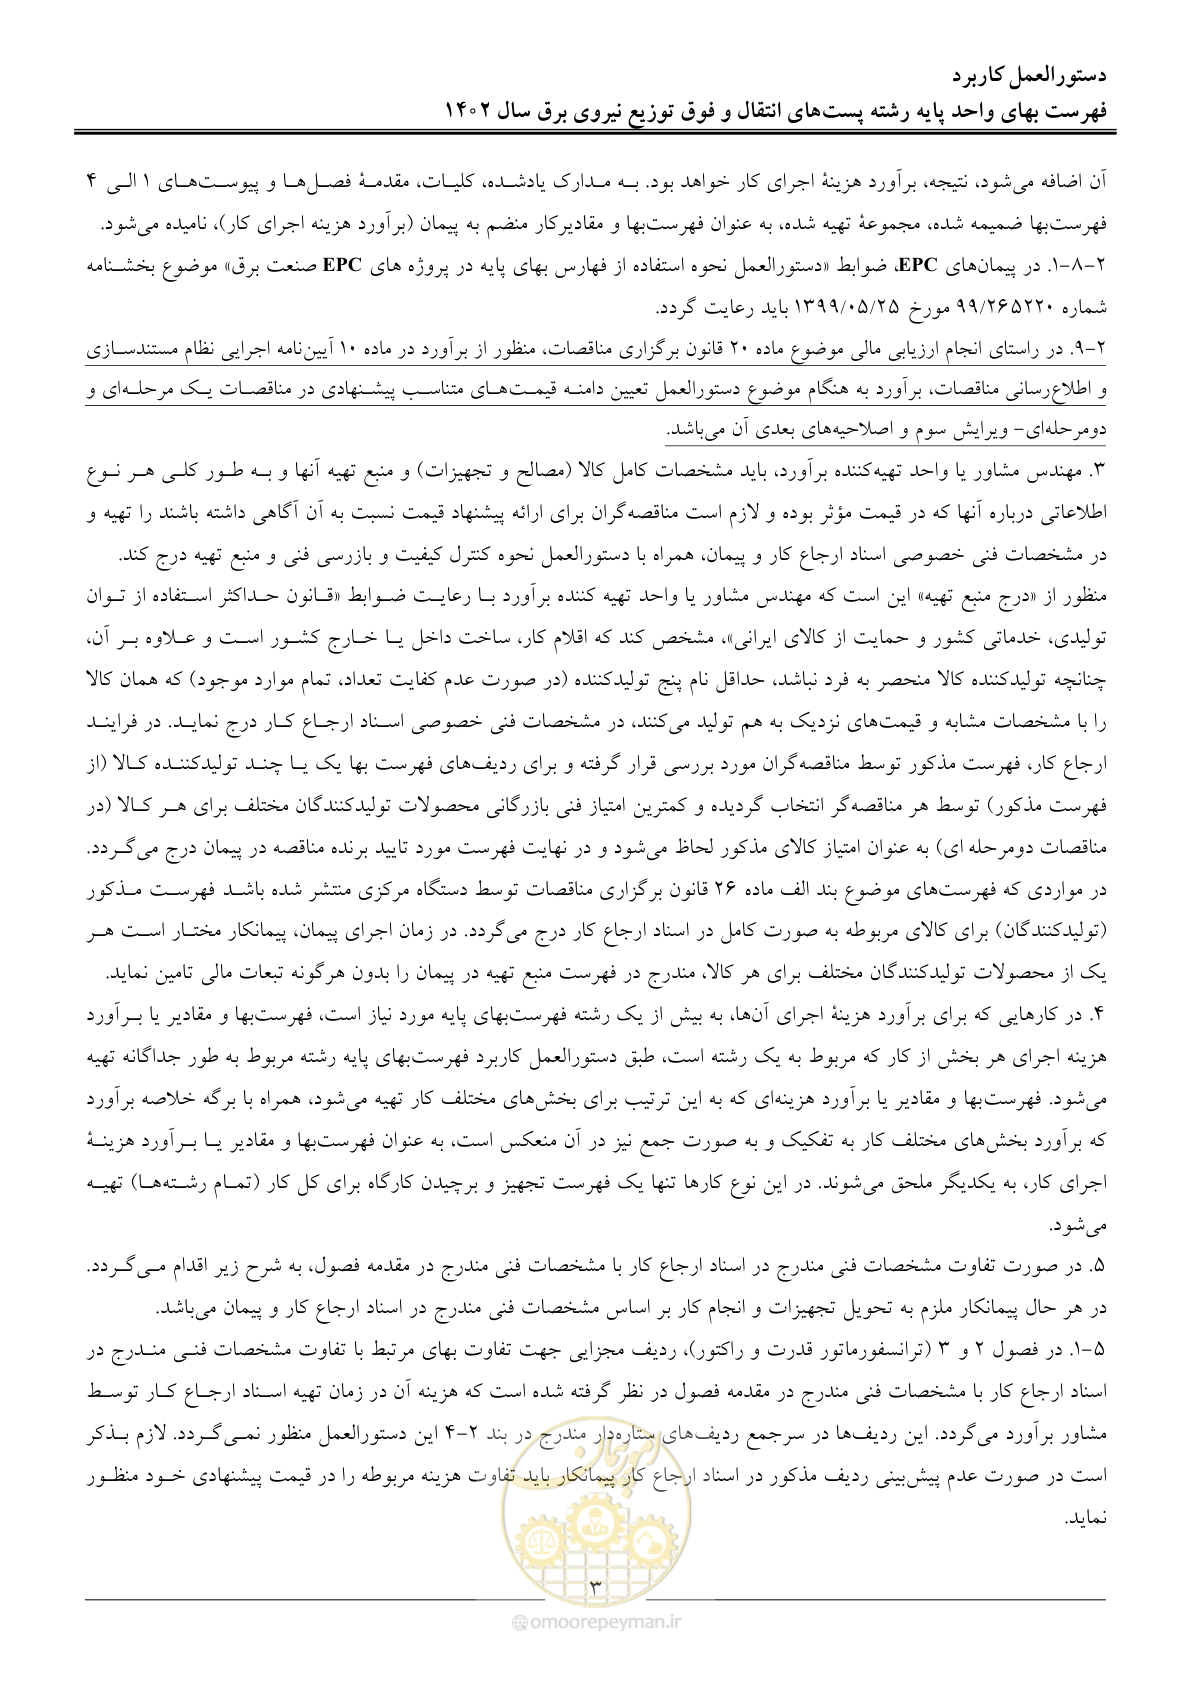 دستورالعمل کاربرد
فهرست بهای واحد پایه رشته پست‌های انتقال و فوق توزیع نیروی برق سال ۱۴۰۲
آن اضافه می‌شود، نتیجه، برآورد هزینهٔ اجرای کار خواهد بود. به مدارک یادشده، کلیات، مقدمهٔ فصل‌ها و پیوست‌های ۱ الی ۴
فهرست‌بها ضمیمه شده، مجموعهٔ تهیه شده، به عنوان فهرست‌بها و مقادیرکار منضم به پیمان (برآورد هزینه اجرای کار)، نامیده می‌شود.
۲-۸-۱. در پیمان‌های EPC، ضوابط «دستورالعمل نحوه استفاده از فهارس بهای پایه در پروژه های EPC صنعت برق» موضوع بخشنامه
شماره ۹۹/۲۶۵۲۲۰ مورخ ۱۳۹۹/۰۵/۲۵ باید رعایت گردد.
۲-۹. در راستای انجام ارزیابی مالی موضوع ماده ۲۰ قانون برگزاری مناقصات، منظور از برآورد در ماده ۱۰ آیین‌نامه اجرایی نظام مستندسازی
و اطلاع‌رسانی مناقصات، برآورد به هنگام موضوع دستورالعمل تعیین دامنه قیمت‌های متناسب پیشنهادی در مناقصات یک مرحله‌ای و
دومرحله‌ای- ویرایش سوم و اصلاحیه‌های بعدی آن می‌باشد.
۳. مهندس مشاور یا واحد تهیه‌کننده برآورد، باید مشخصات کامل کالا (مصالح و تجهیزات) و منبع تهیه آنها و به طور کلی هر نوع
اطلاعاتی درباره آنها که در قیمت مؤثر بوده و لازم است مناقصه‌گران برای ارائه پیشنهاد قیمت نسبت به آن آگاهی داشته باشند را تهیه و
در مشخصات فنی خصوصی اسناد ارجاع کار و پیمان، همراه با دستورالعمل نحوه کنترل کیفیت و بازرسی فنی و منبع تهیه درج کند.
منظور از «درج منبع تهیه» این است که مهندس مشاور یا واحد تهیه کننده برآورد با رعایت ضوابط «قانون حداکثر استفاده از توان
تولیدی، خدماتی کشور و حمایت از کالای ایرانی»، مشخص کند که اقلام کار، ساخت داخل یا خارج کشور است و علاوه بر آن،
چنانچه تولیدکننده کالا منحصر به فرد نباشد، حداقل نام پنج تولیدکننده (در صورت عدم کفایت تعداد، تمام موارد موجود) که همان کالا
را با مشخصات مشابه و قیمت‌های نزدیک به هم تولید می‌کنند، در مشخصات فنی خصوصی اسناد ارجاع کار درج نماید. در فرایند
ارجاع کار، فهرست مذکور توسط مناقصه‌گران مورد بررسی قرار گرفته و برای ردیف‌های فهرست بها یک یا چند تولیدکننده کالا (از
فهرست مذکور) توسط هر مناقصه‌گر انتخاب گردیده و کمترین امتیاز فنی بازرگانی محصولات تولیدکنندگان مختلف برای هر کالا (در
مناقصات دومرحله ای) به عنوان امتیاز کالای مذکور لحاظ می‌شود و در نهایت فهرست مورد تایید برنده مناقصه در پیمان درج می‌گردد.
در مواردی که فهرست‌های موضوع بند الف ماده ۲۶ قانون برگزاری مناقصات توسط دستگاه مرکزی منتشر شده باشد فهرست مذکور
(تولیدکنندگان) برای کالای مربوطه به صورت کامل در اسناد ارجاع کار درج می‌گردد. در زمان اجرای پیمان، پیمانکار مختار است هر
یک از محصولات تولیدکنندگان مختلف برای هر کالا، مندرج در فهرست منبع تهیه در پیمان را بدون هرگونه تبعات مالی تامین نماید.
۴. در کارهایی که برای برآورد هزینهٔ اجرای آن‌ها، به بیش از یک رشته فهرست‌بهای پایه مورد نیاز است، فهرست‌بها و مقادیر یا برآورد
هزینه اجرای هر بخش از کار که مربوط به یک رشته است، طبق دستورالعمل کاربرد فهرست‌بهای پایه رشته مربوط به طور جداگانه تهیه
می‌شود. فهرست‌بها و مقادیر یا برآورد هزینه‌ای که به این ترتیب برای بخش‌های مختلف کار تهیه می‌شود، همراه با برگه خلاصه برآورد
که برآورد بخش‌های مختلف کار به تفکیک و به صورت جمع نیز در آن منعکس است، به عنوان فهرست‌بها و مقادیر یا برآورد هزینهٔ
اجرای کار، به یکدیگر ملحق می‌شوند. در این نوع کارها تنها یک فهرست تجهیز و برچیدن کارگاه برای کل کار (تمام رشته‌ها) تهیه
می‌شود.
۵. در صورت تفاوت مشخصات فنی مندرج در اسناد ارجاع کار با مشخصات فنی مندرج در مقدمه فصول، به شرح زیر اقدام می‌گردد.
در هر حال پیمانکار ملزم به تحویل تجهیزات و انجام کار بر اساس مشخصات فنی مندرج در اسناد ارجاع کار و پیمان می‌باشد.
۵-۱. در فصول ۲ و ۳ (ترانسفورماتور قدرت و راکتور)، ردیف مجزایی جهت تفاوت بهای مرتبط با تفاوت مشخصات فنی مندرج در
اسناد ارجاع کار با مشخصات فنی مندرج در مقدمه فصول در نظر گرفته شده است که هزینه آن در زمان تهیه اسناد ارجاع کار توسط
مشاور برآورد می‌گردد. این ردیف‌ها در سرجمع ردیف‌های ستاره‌دار مندرج در بند ۲-۴ این دستورالعمل منظور نمی‌گردد. لازم بذکر
است در صورت عدم پیش‌بینی ردیف مذکور در اسناد ارجاع کار پیمانکار باید تفاوت هزینه مربوطه را در قیمت پیشنهادی خود منظور
نماید.
امور پیمان
۳
omoorepeyman.ir